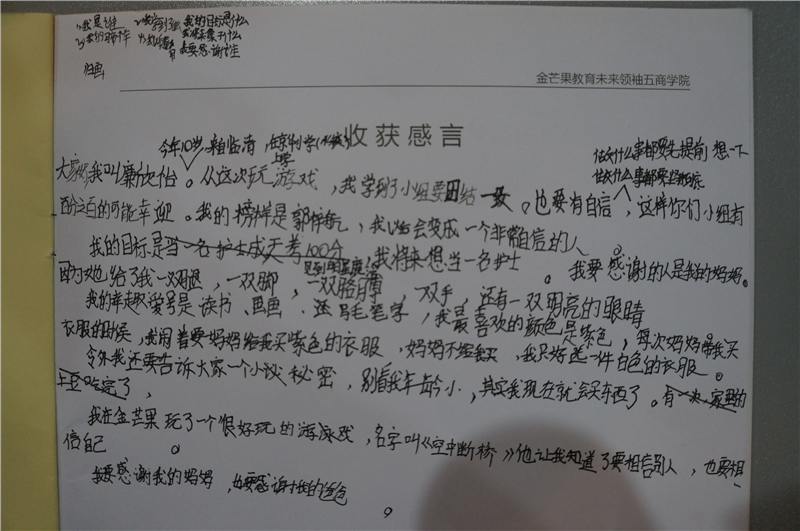 1、我是谁
我的目标是什么
我将来干什么
我要感谢谁
归画
金芒果教育未来领袖五商学院
收获感言
今年10岁，来自临清，在京华小学
上学
做什么事都要先提前想一下
做什么事都要
大家好我叫廉欣怡。从这次玩游戏，我学到了小组要团结一致。也要有自信，这样你们小组有
百分之百的可能幸迎。我的榜样是郭，我以后会变成一个非常自信的人。
我的目标是当一名护士成天考100分，我将来想当一名护士。我要感谢的人是我的妈妈。
因为她给了我一双腿，一双脚，一双胳膊，一双手，还有一双明亮的眼睛
我的兴趣爱号是读书、画画、还写毛笔字，我最喜欢的颜色是紫色，每次妈妈带我买
衣服的时候，我闹着要妈妈给我买紫色的衣服，妈妈不给我买，我只好选一件白色的衣服。
令外我还要告诉大家一个小秘密，别看我年龄小，其实我现在就会买东西了。有一次家里的
吃完了，
我在金芒果玩了一个很好玩的游戏，名字叫《空中断桥》他让我知道了要相信别人，也要相
信自己。
我要感谢我的妈妈，也要感谢我的爸爸
9